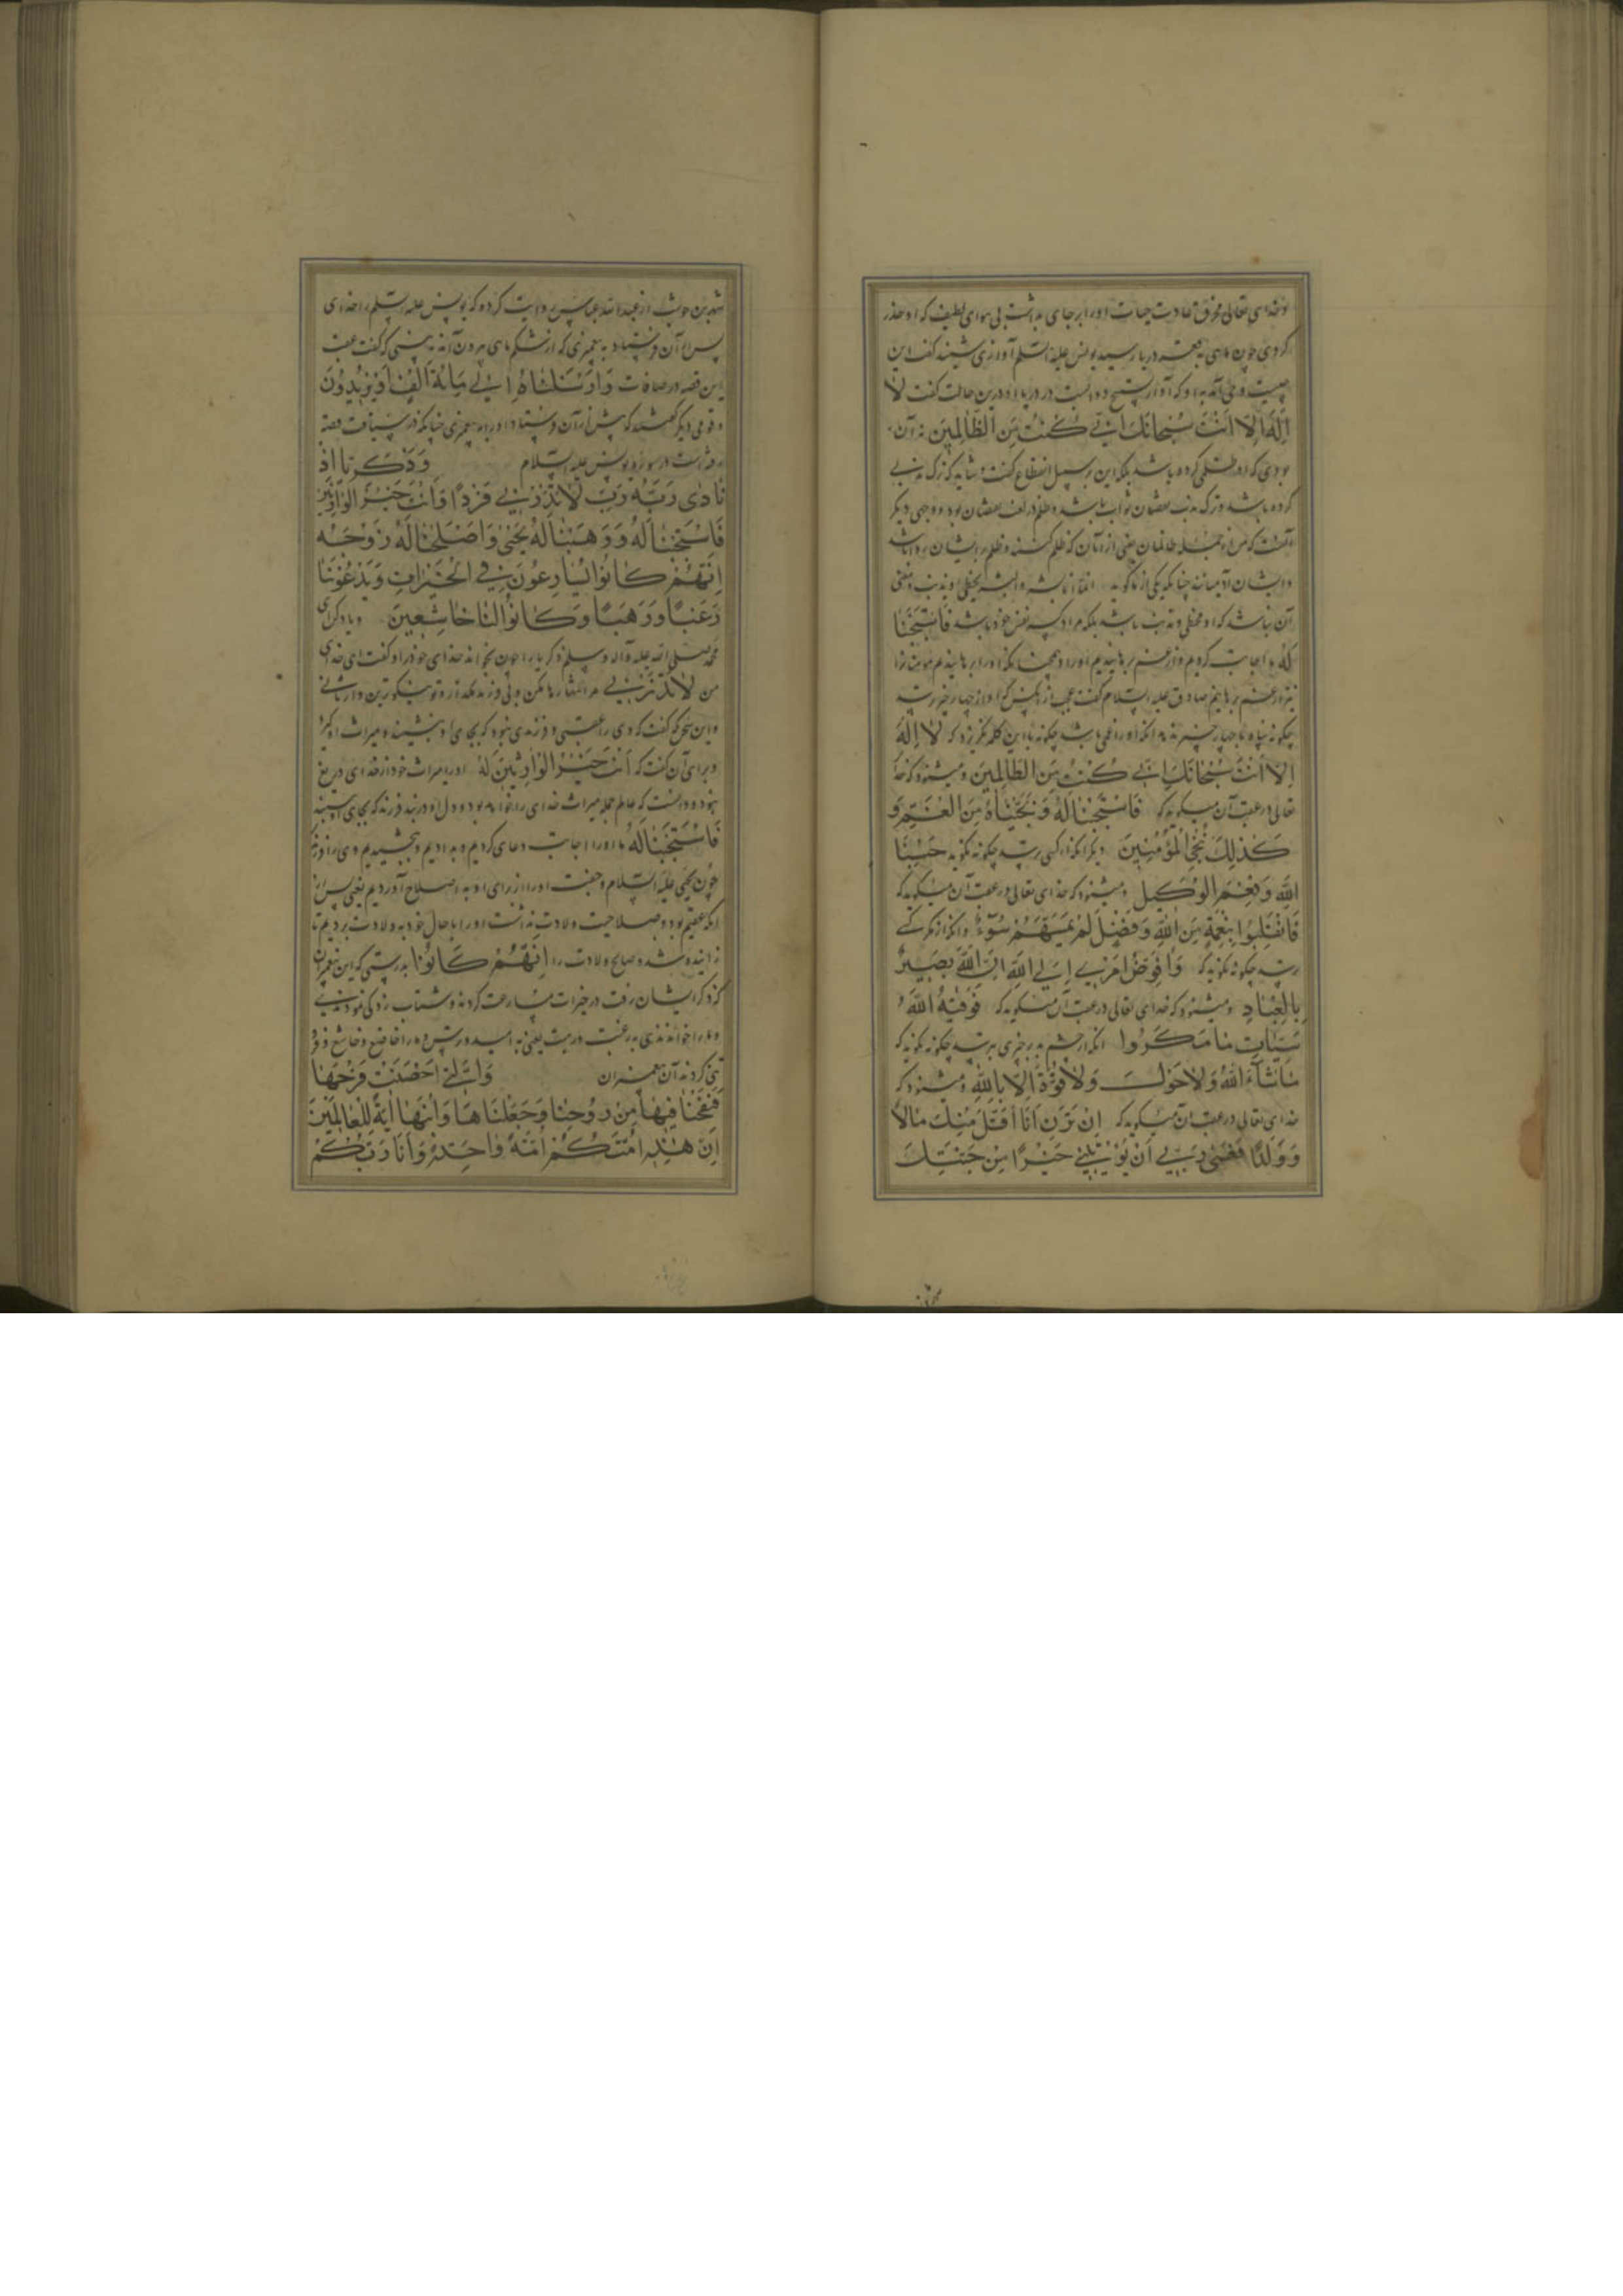 وخدای تعالی بخرق عادت حیات او را بر جای بداشت بی هوای لطیف که او جذر
کردی چون ماهی به قعر دریا رسید یونس علیه السلم آوازی شنید گفت این
چیست وحی آمد به او که آواز تسبیح دواب است در دریا او درین حالت گفت لا
اِلٰهَ اِلّا اَنْتَ سُبْحانَكَ اِنّي كُنْتُ مِنَ الظّالِمينَ نه آن
بودی که او ظلمی کرده باشد بلکه این بر سبیل انقطاع گفت و شاید که ترک مندوبی
کرده باشد و ترک مندوب نقصان ثواب باشد و ظلم در لغت نقصان بود و وجهی دیگر
آنست که من از جمله ظالمان یعنی از آنان که ظلم کنند و ظلم بر ایشان روا باشد
وایشان آدمیانند چنانکه یکی از ما گوید انما انا بشر والبشر یخطی و یذنب و معنی
آن نباشد که او مخطی و مذنب باشد بلکه مراد کسر نفس خود باشد فَاسْتَجَبْنا
لَهُ ما اجابت کردیم و از غم برهانیدیم او را و همچنانکه او را برهانیدیم مؤمنان را
نیز از غم برهانیم صادق علیه السلام گفت عجب از آنکس که او را از چهار چیز رسد
چگونه پناه با چهار چیز ندهد آنکه او را غمی باشد چگونه با این کلمه نگریزد که لا اِلٰهَ
اِلّا اَنْتَ سُبْحانَكَ اِنّي كُنْتُ مِنَ الظّالِمينَ و میشنود که خدا
تعالی در عقب آن میگوید که فَاسْتَجَبْنا لَهُ وَنَجَّيْناهُ مِنَ الْغَمِّ وَ
كَذٰلِكَ نُنْجِي الْمُؤْمِنينَ دیگر آنکه از کسی ترسد چگونه نگوید حَسْبُنَا
اللّٰهُ وَنِعْمَ الْوَكيل و میشنود که خدای تعالی در عقب آن میگوید که
فَانْقَلَبُوا بِنِعْمَةٍ مِنَ اللّٰهِ وَفَضْلٍ لَمْ يَمْسَسْهُمْ سُوءٌ و آنکه از مکر کسی
ترسد چگونه نگوید که وَاُفَوِّضُ اَمْري اِلَى اللّٰهِ اِنَّ اللّٰهَ بَصيرٌ
بِالْعِبادِ و میشنود که خدای تعالی در عقب آن میگوید که فَوَقٰيهُ اللّٰهُ
سَيِّئاتِ ما مَكَرُوا آنکه از چشم بد بر چیزی ترسد چگونه نگوید که
ما شاءَ اللّٰهُ وَلا حَوْلَ وَلا قُوَّةَ اِلّا بِاللّٰهِ و میشنود که
خدای تعالی در عقب آن میگوید که اِنْ تَرَنِ اَنَا اَقَلَّ مِنْكَ مالاً
وَوَلَدًا فَعَسٰى رَبّي اَنْ يُؤْتِيَني خَيْرًا مِنْ جَنَّتِكَ
شهر بن حوشب از عبدالله عباس روایت کرده که یونس علیه السلم را خدای
پس از آن فرستاد به پیغمبری که از شکم ماهی بیرون آمد نه بینی که گفت عقب
این قصه در صافات وَاَرْسَلْناهُ اِلٰى مِائَةِ اَلْفٍ اَوْ يَزيدُونَ
و قومی دیگر گفتند که پیش از آن فرستاد او را به پیغمبری چنانکه در سیاقت قصه
رفته است در سوره یونس علیه السلام وَزَكَرِيّا اِذْ
نادٰى رَبَّهُ رَبِّ لا تَذَرْني فَرْدًا وَاَنْتَ خَيْرُ الْوارِثينَ
فَاسْتَجَبْنا لَهُ وَوَهَبْنا لَهُ يَحْيٰى وَاَصْلَحْنا لَهُ زَوْجَهُ
اِنَّهُمْ كانُوا يُسارِعُونَ فِي الْخَيْراتِ وَيَدْعُونَنا
رَغَبًا وَرَهَبًا وَكانُوا لَنا خاشِعينَ و یاد کن ای
محمد صلی الله علیه وآله وسلم زکریا را چون بخواند خدای خود را و گفت ای خدای
من لا تَذَرْني مرا تنها رها مکن و بی فرزند مگذار و تو نیکوترین وارثانی
و این سخن که گفت که وی را عقبی و فرزندی نبود که بجای او بنشیند و میراث او گیرد
و برای آن گفت که اَنْتَ خَيْرُ الْوارِثينَ که او را میراث خود از خدای دریغ
نبود و دانست که عالم جمله میراث خدای را خواهد بود و دل او در بند فرزند که بجای او بنشیند
فَاسْتَجَبْنا لَهُ ما او را اجابت دعای کردیم و بدادیم و بخشیدیم وی را فرزندی
چون یحیی علیه السلام و جفت او را از برای او به اصلاح آوردیم یعنی پس از
آنکه عقیم بود و صلاحیت ولادت نداشت او را با حال خود به ولادت بردیم تا
زاینده شد و صالح ولادت را اِنَّهُمْ كانُوا بدرستی که این پیغمبران
که ذکر ایشان رفت در خیرات مسارعت کردند و شتاب زدگی نمودندی
و ما را خواندندی به رغبت و رهبت یعنی به امید و ترس و ما را خاضع و خاشع و فرو
تنی کردند آن پیغمبران وَالَّتي اَحْصَنَتْ فَرْجَها
فَنَفَخْنا فيها مِنْ رُوحِنا وَجَعَلْناها وَابْنَها اٰيَةً لِلْعالَمينَ
اِنَّ هٰذِهِ اُمَّتُكُمْ اُمَّةً واحِدَةً وَاَنَا رَبُّكُمْ